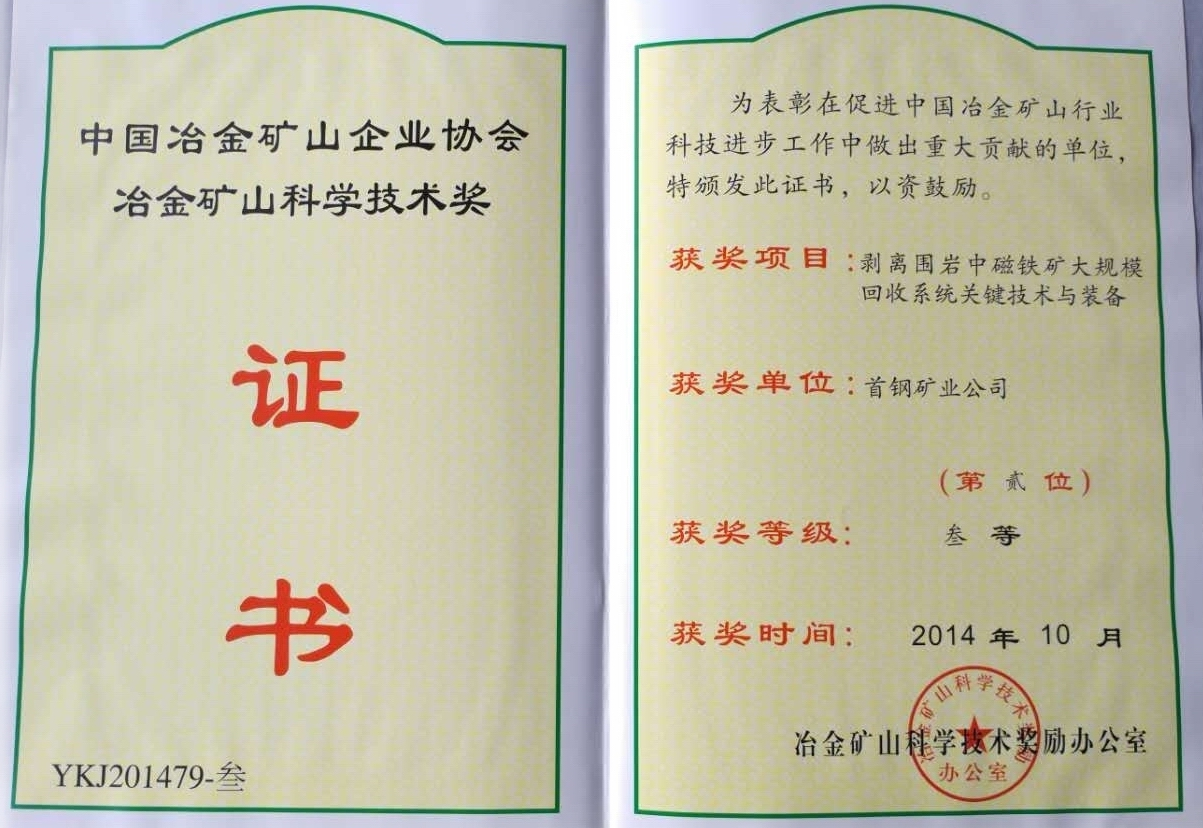 中国冶金矿山企业协会
冶金矿山科学技术奖
证
书
YKJ201479-叁
为表彰在促进中国冶金矿山行业
科技进步工作中做出重大贡献的单位，
特颁发此证书，以资鼓励。
获奖项目：剥离围岩中磁铁矿大规模
回收系统关键技术与装备
获奖单位：首钢矿业公司
（第 贰 位）
获奖等级： 叁 等
获奖时间： 2014 年 10 月
冶金矿山科学技术奖励办公室
冶金矿山科学技术奖励
办公室